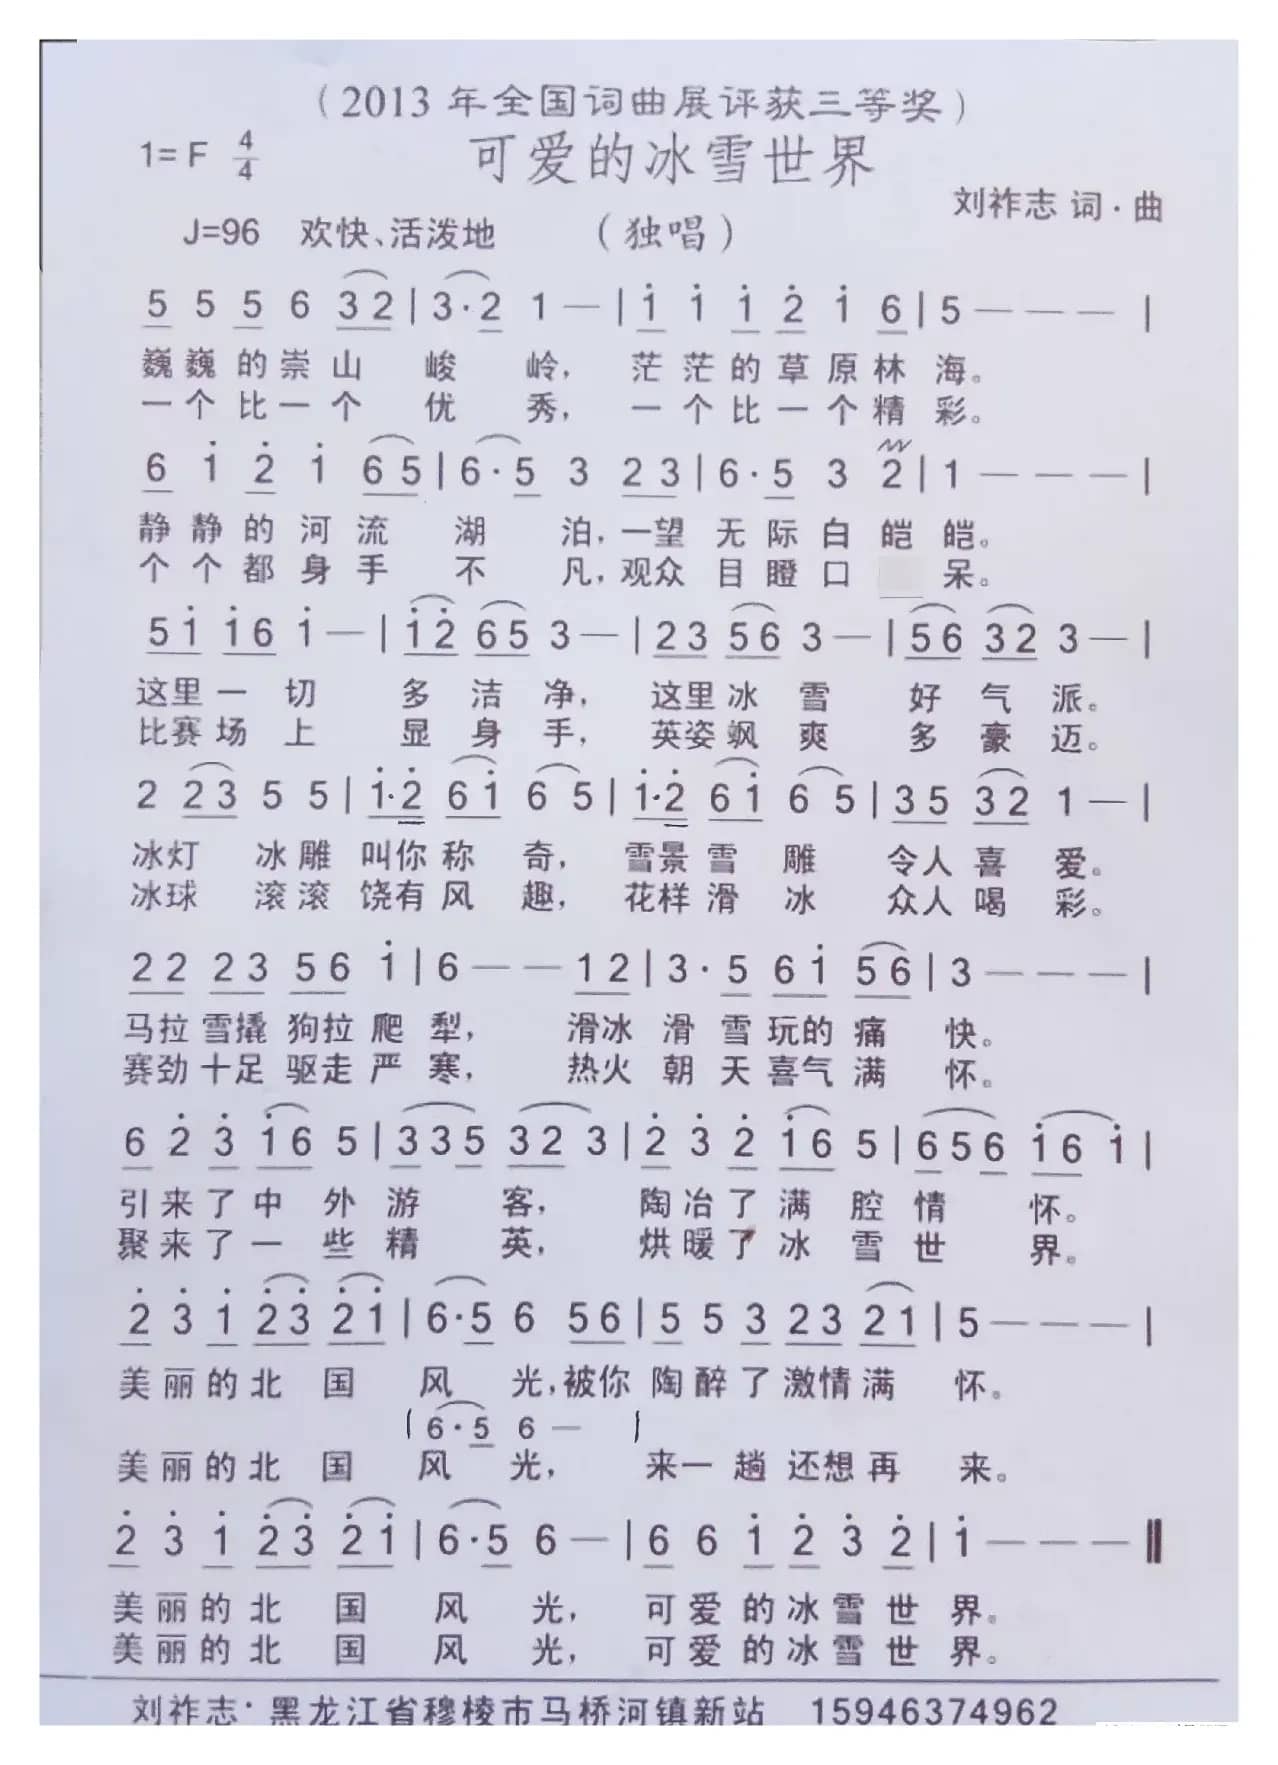 （2013 年全国词曲展评获三等奖）
1= F 4/4 可爱的冰雪世界
刘祚志 词·曲
J=96 欢快、活泼地 （独唱）
5 5 5 6 3 2 | 3·2 1 — | i i i 2̇ i 6 | 5 — — — |
巍巍的崇山峻岭，茫茫的草原林海。
一个比一个优秀，一个比一个精彩。
6 i 2̇ i 6 5 | 6·5 3 2 3 | 6·5 3 2 | 1 — — — |
静静的河流湖泊，一望无际白皑皑。
个个都身手不凡，观众目瞪口 呆。
5 i i 6 i — | i 2̇ 6 5 3 — | 2 3 5 6 3 — | 5 6 3 2 3 — |
这里一切多洁净，这里冰雪好气派。
比赛场上显身手，英姿飒爽多豪迈。
2 2 3 5 5 | i·2̇ 6 i 6 5 | i·2̇ 6 i 6 5 | 3 5 3 2 1 — |
冰灯冰雕叫你称奇，雪景雪雕令人喜爱。
冰球滚滚饶有风趣，花样滑冰众人喝彩。
2 2 2 3 5 6 i | 6 — — 1 2 | 3·5 6 i 5 6 | 3 — — — |
马拉雪撬狗拉爬犁，滑冰滑雪玩的痛快。
赛劲十足驱走严寒，热火朝天喜气满怀。
6 2̇ 3̇ i 6 5 | 3 3 5 3 2 3 | 2̇ 3̇ 2̇ i 6 5 | 6 5 6 i 6 i |
引来了中外游客，陶冶了满腔情怀。
聚来了一些精英，烘暖了冰雪世界。
2̇ 3̇ i 2̇ 3̇ 2̇ i | 6·5 6 5 6 | 5 5 3 2 3 2 1 | 5 — — — |
美丽的北国风光，被你陶醉了激情满怀。
| 6·5 6 — |
美丽的北国风光，来一趟还想再来。
2̇ 3̇ i 2̇ 3̇ 2̇ i | 6·5 6 — | 6 6 i 2̇ 3̇ 2̇ | i — — — ‖
美丽的北国风光，可爱的冰雪世界。
美丽的北国风光，可爱的冰雪世界。
刘祚志：黑龙江省穆棱市马桥河镇新站 15946374962